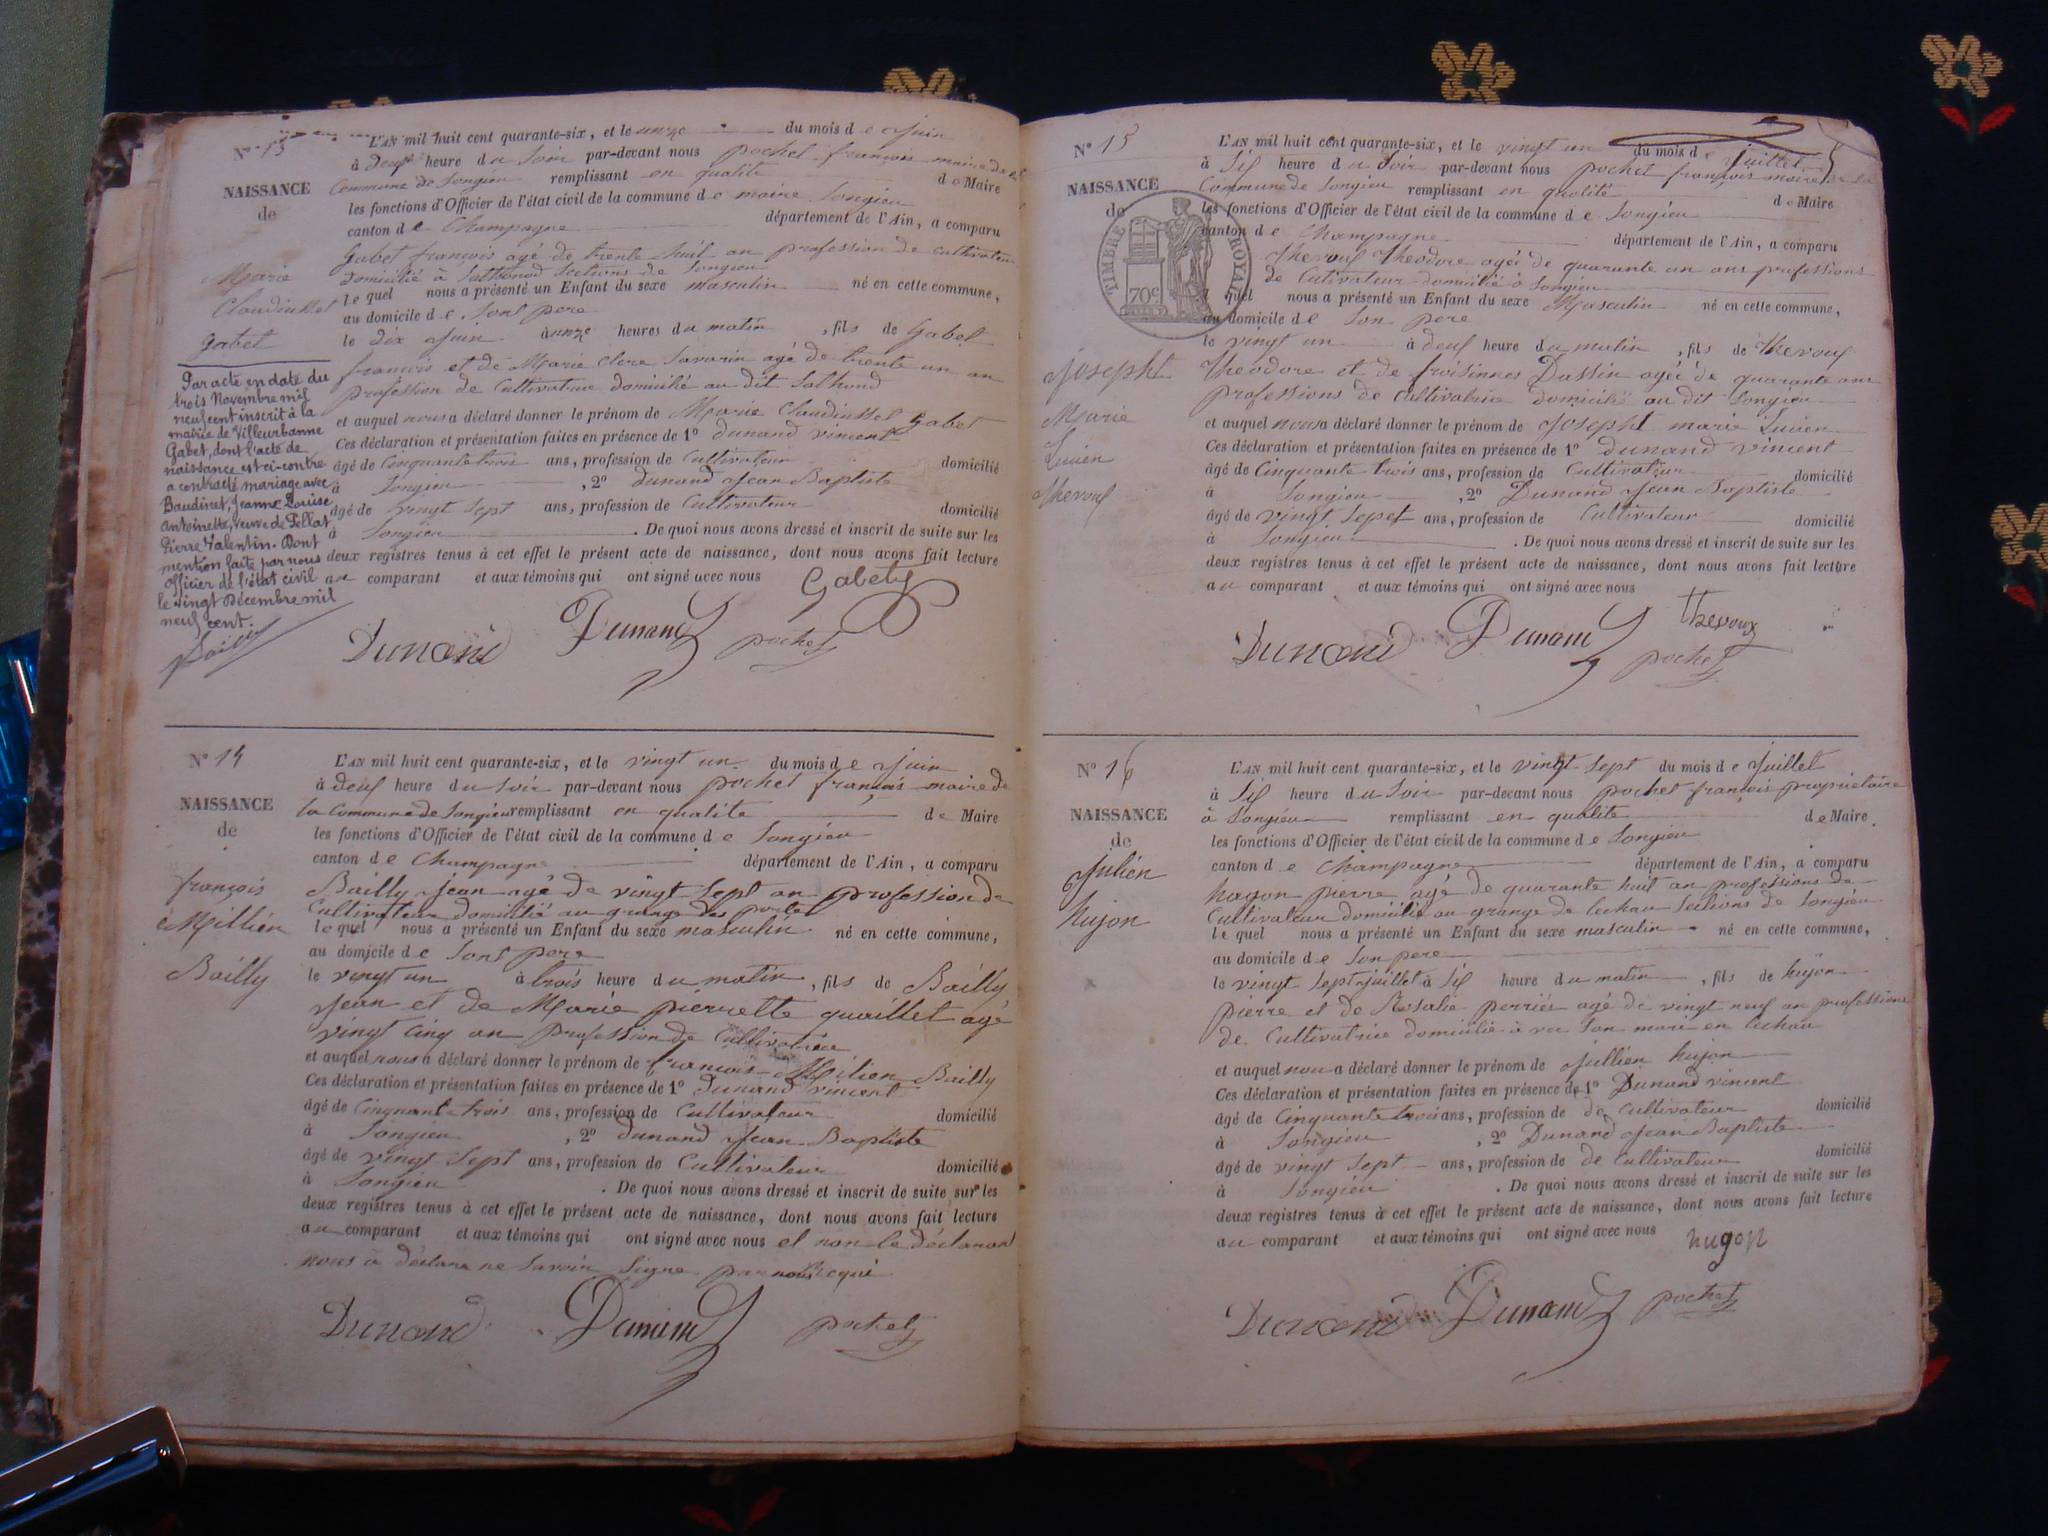 N° 13
NAISSANCE
de
Marie
Claudinssel
Gabet
Par acte en date du
trois Novembre mil
neuf cent inscrit à la
mairie de Villeurbanne
Gabet, dont l'acte de
naissance est ci-contre
a contracté mariage avec
Baudinet, Jeanne Louise
Antoinette, veuve de Pellat
Pierre Valentin. Dont
mention faite par nous
officier de l'état civil
le vingt Décembre mil
neuf cent.
L'AN mil huit cent quarante-six, et le unze du mois de Juin
à deuf heure du Soir par-devant nous pochet françois maire de
Commune de Songieu remplissant en qualite de Maire
les fonctions d'Officier de l'état civil de la commune de maire Songieu
canton de Champagne département de l'Ain, a comparu
Gabet françois agé de trente huit an profession de cultivateur
domicilié à Sothonod Sections de Songieu
le quel nous a présenté un Enfant du sexe masculin né en cette commune,
au domicile de Sont pere
le dix Juin à unze heures du matin, fils de Gabet
francois et de Marie Clere Savarin agé de trente un an
profession de Cultivatrice domicilié au dit Sothond
et auquel nous a déclaré donner le prénom de Marie Claudinssel Gabet
Ces déclaration et présentation faites en présence de 1° Dunand vincent
âgé de Cinquante trois ans, profession de Cultivateur domicilié
à Songieu, 2° Dunand Jean Baptiste
âgé de vingt Sept ans, profession de Cultivateur domicilié
à Songieu. De quoi nous avons dressé et inscrit de suite sur les
deux registres tenus à cet effet le présent acte de naissance, dont nous avons fait lecture
au comparant et aux témoins qui ont signé avec nous Gabet
Dunand Dunand pochet
N° 14
NAISSANCE
de
françois
Millien
Bailly
L'AN mil huit cent quarante-six, et le vingt un du mois de Juin
à deuf heure du Soir par-devant nous pochet françois maire de
la Commune de Songieu remplissant en qualite de Maire
les fonctions d'Officier de l'état civil de la commune de Songieu
canton de Champagne département de l'Ain, a comparu
Bailly Jean agé de vingt Sept an profession de
Cultivateur domicilié au grange des portes
le quel nous a présenté un Enfant du sexe masculin né en cette commune,
au domicile de Sont pere
le vingt un à trois heure du matin, fils de Bailly
Jean et de Marie pierrette quaillet agé
vingt cinq an profession de Cultivatrice
et auquel nous a déclaré donner le prénom de francois Milien Bailly
Ces déclaration et présentation faites en présence de 1° Dunand vincent
âgé de Cinquante trois ans, profession de Cultivateur domicilié
à Songieu, 2° Dunand Jean Baptiste
âgé de vingt Sept ans, profession de Cultivateur domicilié
à Songieu. De quoi nous avons dressé et inscrit de suite sur les
deux registres tenus à cet effet le présent acte de naissance, dont nous avons fait lecture
au comparant et aux témoins qui ont signé avec nous et non le déclarant
nous a déclare ne Savoir Signe par nous
Dunand Dunand pochet
N° 15
NAISSANCE
de
TIMBRE ROYAL
70c
Josepht
Marie
Lucien
Thevouf
L'AN mil huit cent quarante-six, et le vingt un du mois de Juillet
à Sif heure du Soir par-devant nous pochet françois maire de la
Commune de Songieu remplissant en qualité de Maire
les fonctions d'Officier de l'état civil de la commune de Songieu
canton de Champagne département de l'Ain, a comparu
Thevouf Theodore agée de quarante un ans professions
de Cultivateur domicilié à Songieu
le quel nous a présenté un Enfant du sexe Masculin né en cette commune,
au domicile de Son pere
le vingt un à deuf heure du matin, fils de Thevouf
Theodore et de froisinnes Dassin agée de quarante ans
professions de Cultivatrice domicilié au dit Songieu
et auquel nous a déclaré donner le prénom de Josepht marie Lucien
Ces déclaration et présentation faites en présence de 1° Dunand vincent
âgé de Cinquante trois ans, profession de Cultivateur domicilié
à Songieu, 2° Dunand Jean Baptiste
âgé de vingt Sepet ans, profession de Cultivateur domicilié
à Songieu. De quoi nous avons dressé et inscrit de suite sur les
deux registres tenus à cet effet le présent acte de naissance, dont nous avons fait lecture
au comparant et aux témoins qui ont signé avec nous
Thevoux
Dunand Dunand pochet
N° 16
NAISSANCE
de
Julien
hujon
L'AN mil huit cent quarante-six, et le vingt Sept du mois de Juillet
à Sif heure du Soir par-devant nous pochet françois propriétaire
à Songieu remplissant en qualité de Maire
les fonctions d'Officier de l'état civil de la commune de Songieu
canton de Champagne département de l'Ain, a comparu
hugon pierre agé de quarante huit an professions de
Cultivateur domicilié au grange de Lechau Sections de Songieu
le quel nous a présenté un Enfant du sexe masculin né en cette commune,
au domicile de Son pere
le vingt Sept juillet à Sif heure du matin, fils de hujon
pierre et de Rosalie perriés agé de vingt neuf an professions
de Cultivatrice domicilié Son mari en Lechau
et auquel nou a déclaré donner le prénom de Jullien hujon
Ces déclaration et présentation faites en présence de 1° Dunand vincent
âgé de Cinquante trois ans, profession de de Cultivateur domicilié
à Songieu, 2° Dunand Jean Baptiste
âgé de vingt Sept ans, profession de de Cultivateur domicilié
à Songieu. De quoi nous avons dressé et inscrit de suite sur les
deux registres tenus à cet effet le présent acte de naissance, dont nous avons fait lecture
au comparant et aux témoins qui ont signé avec nous hugon
Dunand Dunand pochet